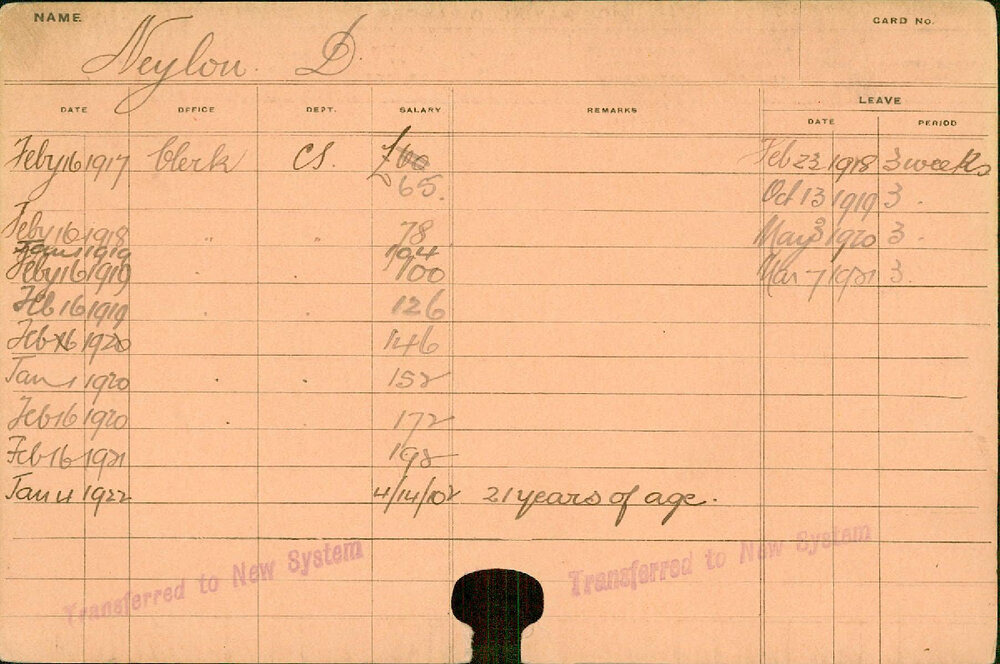 NAME
CARD No.
Neylon. D.
DATE OFFICE DEPT. SALARY REMARKS LEAVE
DATE PERIOD
Feby 16 1917 Clerk CS. £60 Feb 23 1918 3 weeks
65. Oct 13 1919 3 .
Feby 16 1918 " " 78 May 3 1920 3 .
Jan 1 1919 104
Feby 16 1919 100 Mar 7 1921 3.
Feb 16 1919 126
Feb 16 1920 146
Jan 1 1920 152
Feb 16 1920 172
Feb 16 1921 192
Jan 11 1922 4/14/10 21 years of age.
Transferred to New System Transferred to New System